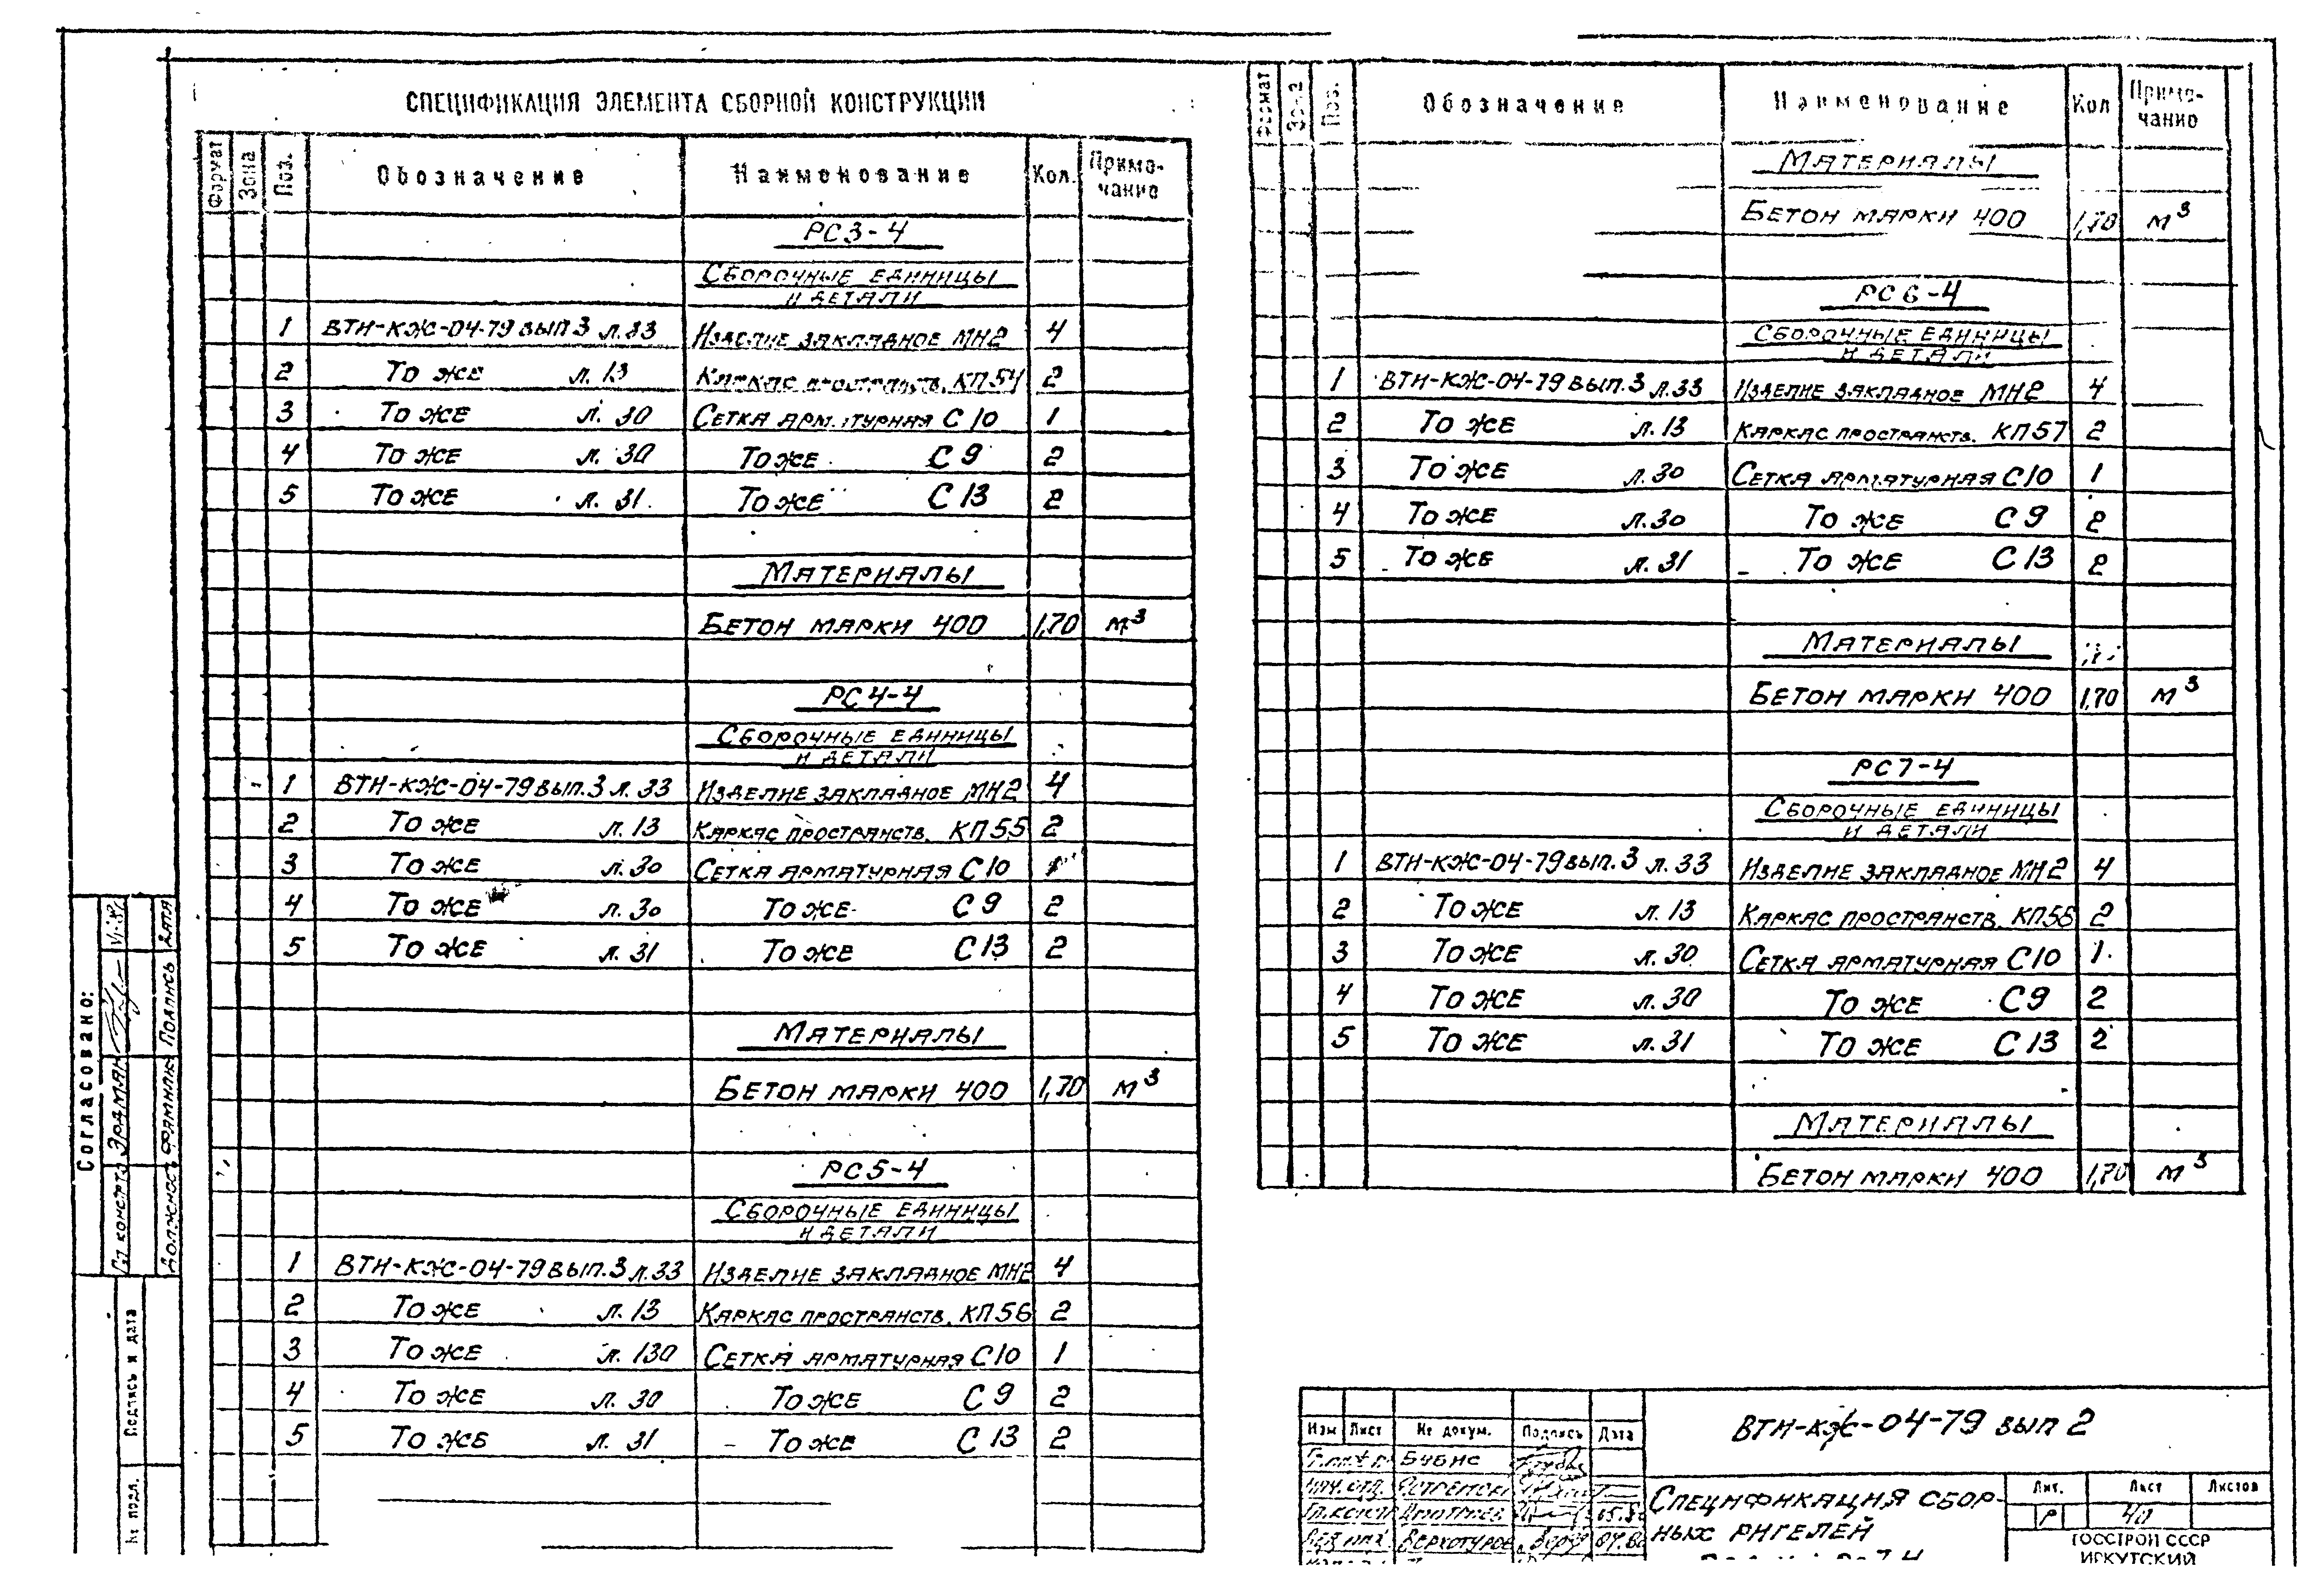 СПЕЦИФИКАЦИЯ ЭЛЕМЕНТА СБОРНОЙ КОНСТРУКЦИИ
Формат Зона Поз. Обозначение Наименование Кол. Приме-
чание
РС3-4
СБОРОЧНЫЕ ЕДИНИЦЫ
И ДЕТАЛИ
1 ВТН-КЖ-04-79 ВЫП 3 л. 33 ИЗДЕЛИЕ ЗАКЛАДНОЕ МН2 4
2 ТО ЖЕ л. 13 КАРКАС ПРОСТРАНСТВ. КП54 2
3 ТО ЖЕ л. 30 СЕТКА АРМАТУРНАЯ С10 1
4 ТО ЖЕ л. 30 ТО ЖЕ С9 2
5 ТО ЖЕ л. 31. ТО ЖЕ С13 2
МАТЕРИАЛЫ
БЕТОН МАРКИ 400 1,70 м³
РС4-4
СБОРОЧНЫЕ ЕДИНИЦЫ
И ДЕТАЛИ
1 ВТН-КЖ-04-79 ВЫП. 3 л. 33 ИЗДЕЛИЕ ЗАКЛАДНОЕ МН2 4
2 ТО ЖЕ л. 13 КАРКАС ПРОСТРАНСТВ. КП55 2
3 ТО ЖЕ л. 30 СЕТКА АРМАТУРНАЯ С10 1
4 ТО ЖЕ л. 30 ТО ЖЕ С9 2
5 ТО ЖЕ л. 31 ТО ЖЕ С13 2
МАТЕРИАЛЫ
БЕТОН МАРКИ 400 1,70 м³
РС5-4
СБОРОЧНЫЕ ЕДИНИЦЫ
И ДЕТАЛИ
1 ВТН-КЖ-04-79 ВЫП. 3 л. 33 ИЗДЕЛИЕ ЗАКЛАДНОЕ МН2 4
2 ТО ЖЕ л. 13 КАРКАС ПРОСТРАНСТВ. КП56 2
3 ТО ЖЕ л. 130 СЕТКА АРМАТУРНАЯ С10 1
4 ТО ЖЕ л. 30 ТО ЖЕ С9 2
5 ТО ЖЕ л. 31 ТО ЖЕ С13 2
Формат Зона Поз. Обозначение Наименование Кол Приме-
чание
МАТЕРИАЛЫ
БЕТОН МАРКИ 400 1,70 м³
РС6-4
СБОРОЧНЫЕ ЕДИНИЦЫ
И ДЕТАЛИ
1 ВТН-КЖ-04-79 ВЫП. 3 л. 33 ИЗДЕЛИЕ ЗАКЛАДНОЕ МН2 4
2 ТО ЖЕ л. 13 КАРКАС ПРОСТРАНСТВ. КП57 2
3 ТО ЖЕ л. 30 СЕТКА АРМАТУРНАЯ С10 1
4 ТО ЖЕ л. 30 ТО ЖЕ С9 2
5 ТО ЖЕ л. 31 ТО ЖЕ С13 2
МАТЕРИАЛЫ
БЕТОН МАРКИ 400 1,70 м³
РС7-4
СБОРОЧНЫЕ ЕДИНИЦЫ
И ДЕТАЛИ
1 ВТН-КЖ-04-79 ВЫП. 3 л. 33 ИЗДЕЛИЕ ЗАКЛАДНОЕ МН2 4
2 ТО ЖЕ л. 13 КАРКАС ПРОСТРАНСТВ. 2
3 ТО ЖЕ л. 30 СЕТКА АРМАТУРНАЯ С10 1
4 ТО ЖЕ л. 30 ТО ЖЕ С9 2
5 ТО ЖЕ л. 31 ТО ЖЕ С13 2
МАТЕРИАЛЫ
БЕТОН МАРКИ 400 1,70 м³
Согласовано:
Гл. констр. ЭРДМАН
Должность Фамилия Подпись Дата
Подпись и дата
№ подл.
ВТН-КЖ-04-79 ВЫП 2
Изм Лист № докум. Подпись Дата
БУБИС
СПЕЦИФИКАЦИЯ СБОР-
НЫХ РИГЕЛЕЙ
Лит. Лист Листов
Р 40
ГОССТРОЙ СССР
ИРКУТСКИЙ